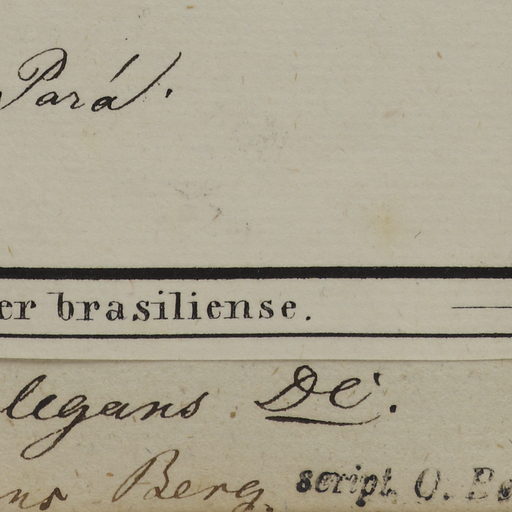 Pará.
er brasiliense.
legans DC.
ns Berg. script. O. Be